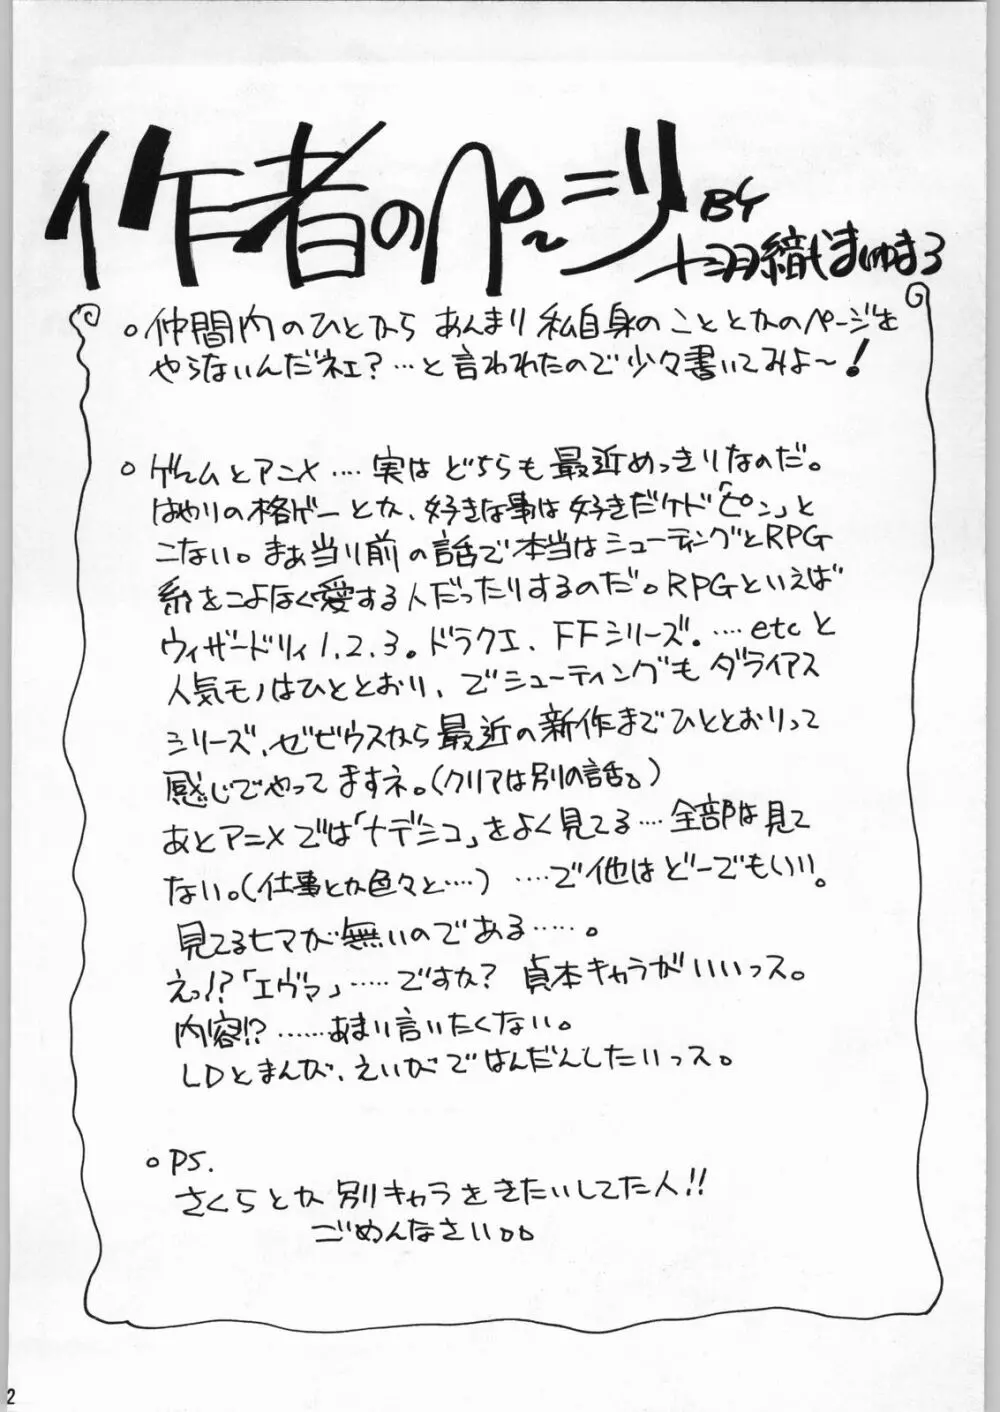 作者のページ
BY
十三月織まゆまろ
○仲間内のひとから あんまり 私自身の こととかのページを
やらないんだネェ？…と言われたので少々書いてみよ〜！
○ゲームとアニメ…. 実は どちらも 最近めっきりなのだ。
はやりの格ゲーとか、好きな事は好きだケド「ピン」と
こない。まぁ当り前の話で本当はシューティングとRPG
系をこよなく愛する人だったりするのだ。RPGといえば
ウィザードリィ1.2.3。ドラクエ、FFシリーズ。….etcと
人気モノはひととおり、でシューティングも ダライアス
シリーズ、ゼビウスなら最近の新作までひととおりって
感じでやってますネ。(クリアは別の話。)
あとアニメでは「ナデシコ」をよく見てる….全部は見て
ない。(仕事とか色々と….) ….で他はどーでもいい。
見てるヒマが無いのである…‥。
えっ!?「エヴァ」…‥ですか？ 貞本キャラがいいっス。
内容!? ……あまり言いたくない。
LDとまんが、えいがではんだんしたいっス。
○PS.
さくらとか別キャラをきたいしてた人!!
ごめんなさい。。
2